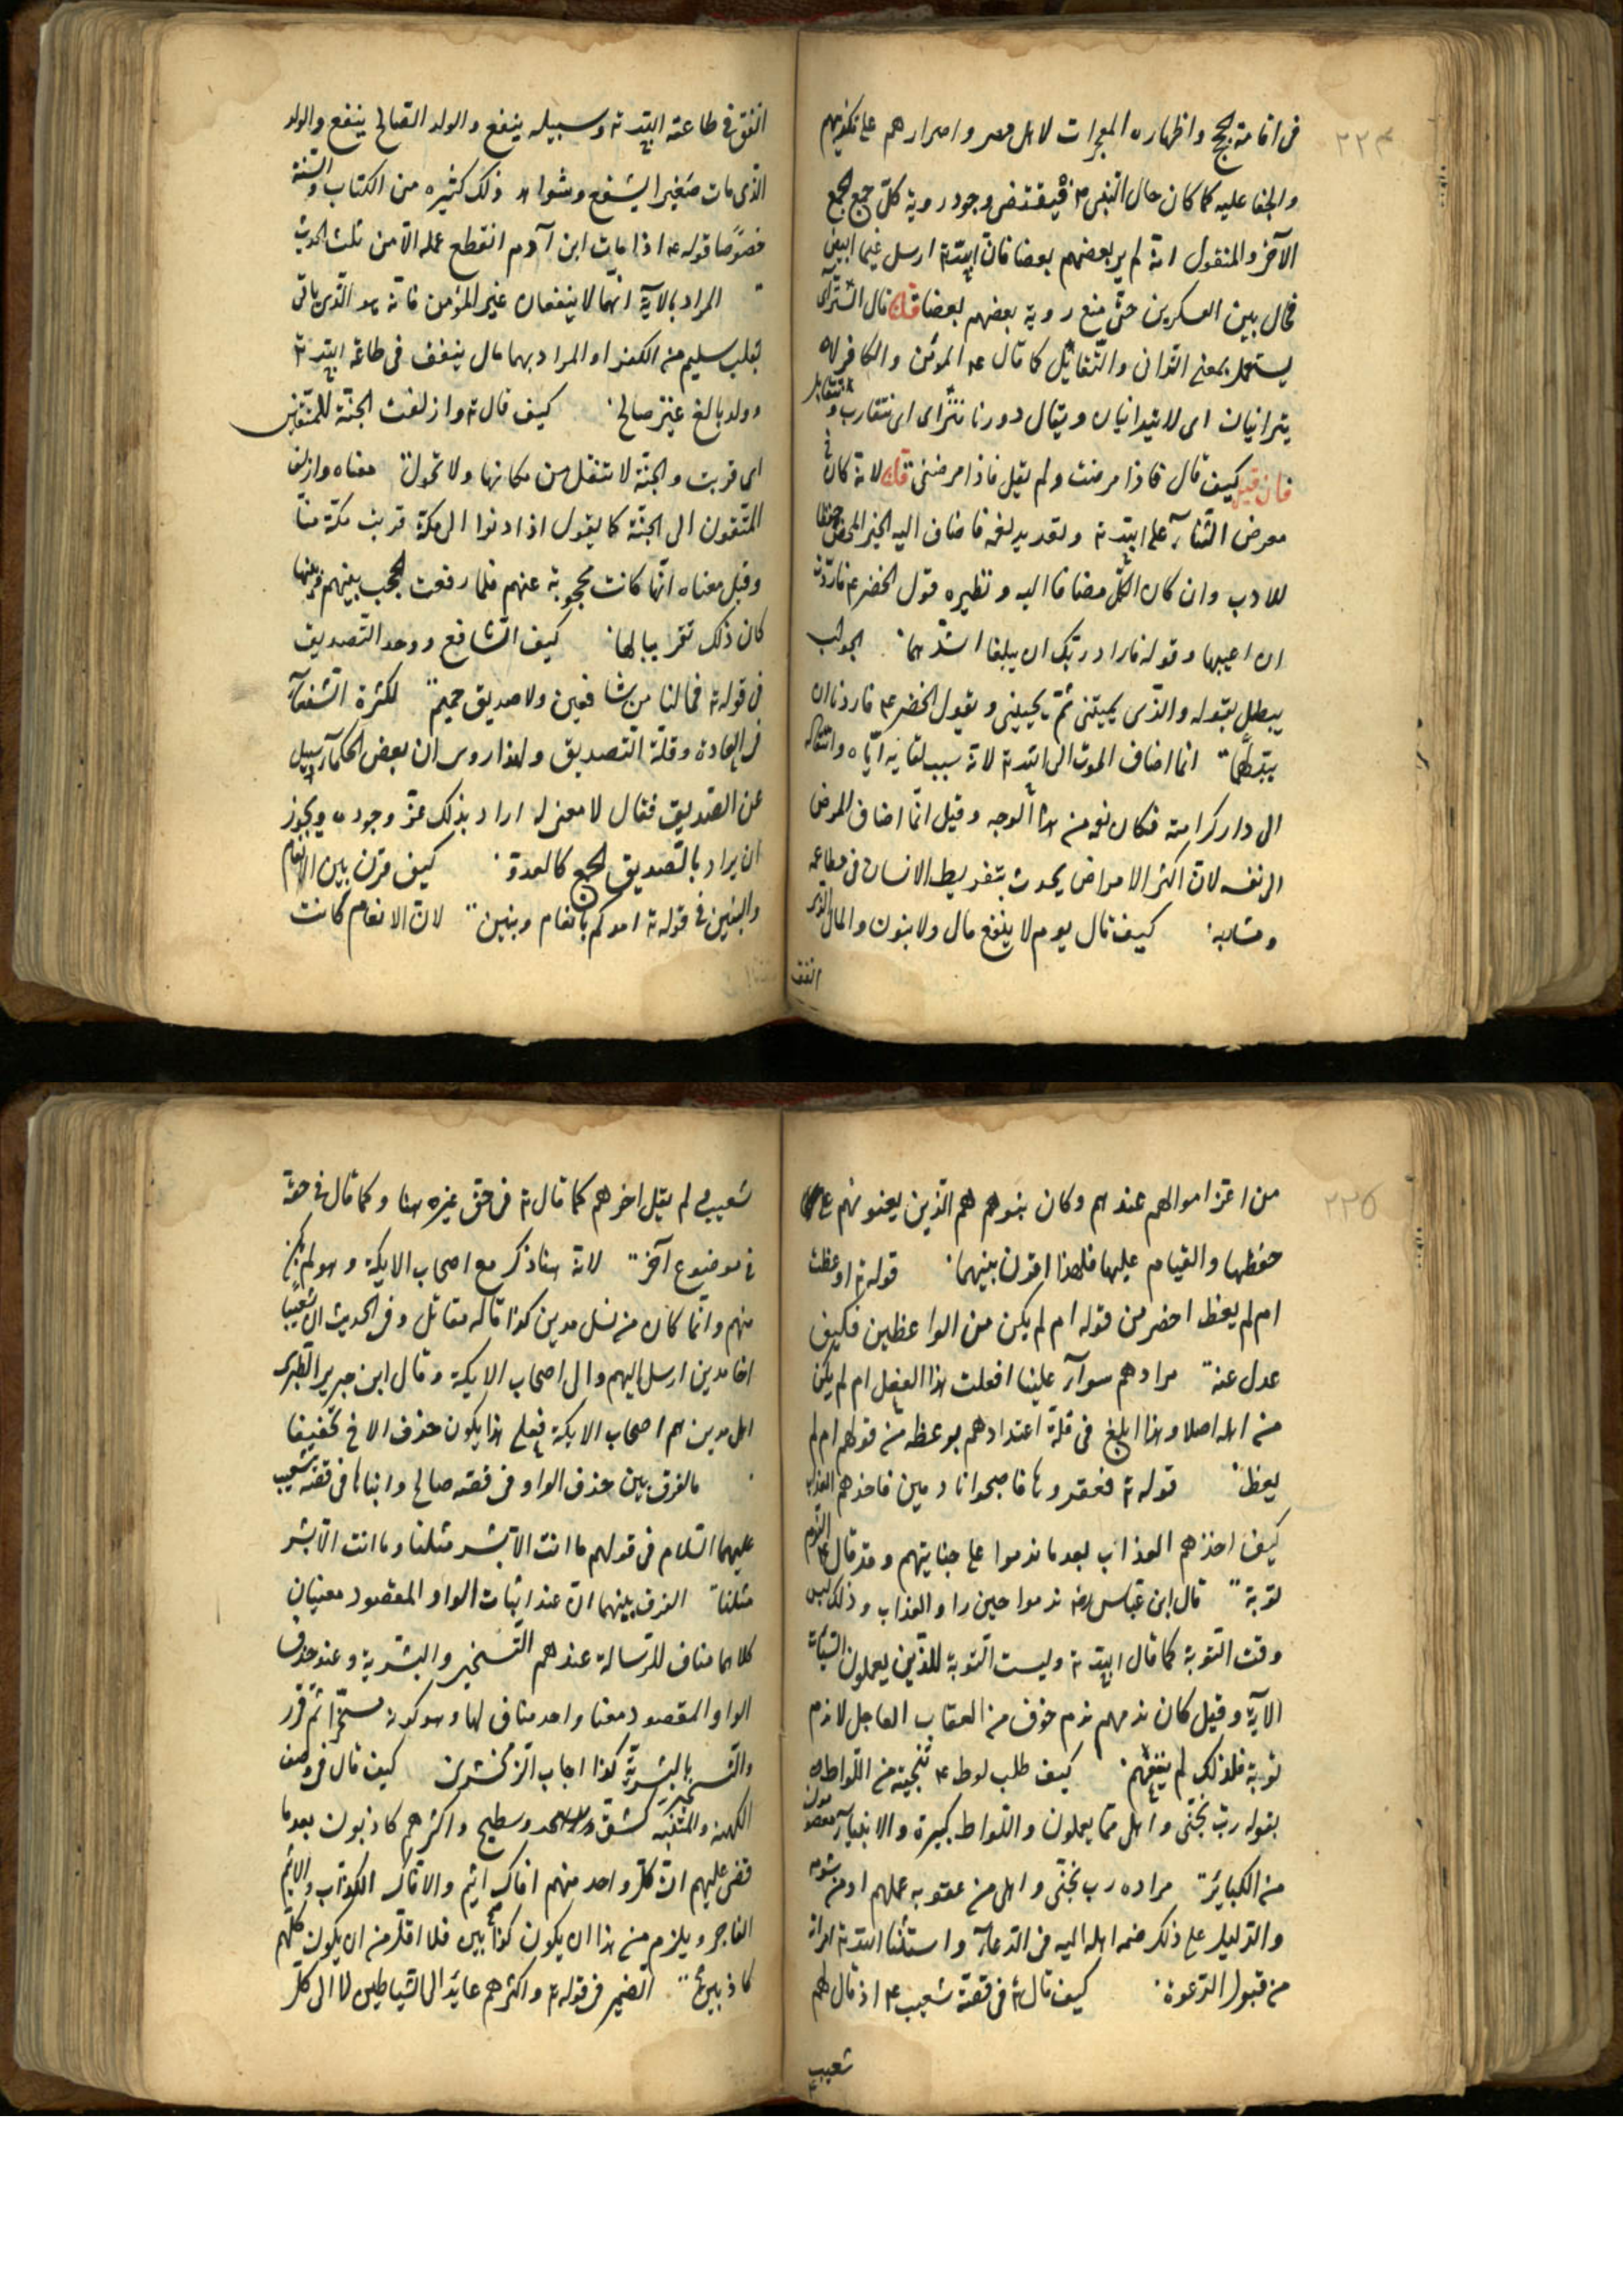 ٢٢٤
فى اقامته الحجج واظهاره المعجزات لاهل مصر واصرارهم على تكذيبهم
والجفا عليه كما كان حال النبى ء م فيقتضى وجود روية كل جمع لجمع
الآخر والمنقول انه لم ير بعضهم بعضا فان الله تع ارسل غيما ابيض
فحال بين العسكرين حتى منع روية بعضهم بعضا قلت قال الترآى
يستعمل بمعنى التدانى والتقابل كما قال ء م المؤمن والكافر لا
يترائيان اى لا يتدانيان ويقال دورنا تترآى اى تتقارب و تتقابل
فان قيل كيف قال فاذا مرضت ولم يقل فاذا امرضنى قلت لانه كان فى
معرض الثنآء على الله تع وتعديد نعمه فاضاف اليه الخير المحض حفظا
للادب وان كان الكل مضافا اليه ونظيره قول الخضر ء م فاردت
ان اعيبها وقوله فاراد ربك ان يبلغا اشدهما ∴ الجواب
يبطل بقوله والذى يميتنى ثم يحيينى وبقول الخضر ء م فاردنا ان
يبدلهما ∴ انما اضاف الموت الى الله تع لانه سبب لقايه اياه وانتقاله
الى دار كرامته فكان نعمه من هذا الوجه وقيل انما اضاف المرض
الى نفسه لان اكثر الامراض يحدث بتفريط الانسان فى مطاعمه
ومشاربه ∴ كيف قال يوم لا ينفع مال ولا بنون والمال الذى
انفق
انفق فى طاعته الله تع وسبيله ينفع والولد الصالح ينفع والولد
الذى مات صغيرا يشفع وشواهد ذلك كثيره من الكتاب والسنة
خصوصا قوله ء م اذا مات ابن آدم انقطع عمله الا من ثلث الحديث
∴ المراد بالآية انهما لا ينفعان غير المؤمن فانه هو الذى ياتى
بقلب سليم من الكفر او المراد بهما مال ينفق فى طاعة الله تع
وولد بالغ غير صالح ∴ كيف قال تع وازلفت الجنة للمتقين
اى قربت والجنة لا تنتقل من مكانها ولا تحول ∴ معناه وازلفت
المتقون الى الجنة كما يقول اذا دنوا الى مكة قربت مكة منا
وقيل معناه انها كانت محجوبة عنهم فلما رفعت الحجب بينهم وبينها
كان ذلك تقريبا لها ∴ كيف الشافع ووحد الصديق
فى قوله تع فما لنا من شافعين ولا صديق حميم ∴ لكثرة الشفعآء
فى العادة وقلة الصديق ولهذا روى ان بعض الحكمآء سيل
عن الصديق فقال لا معنى له اراد بذلك عز وجوده ويجوز
ان يراد بالصديق الجمع كالعدو ∴ كيف قرن بين الانعام
والبنين فى قوله تع امدكم بانعام وبنين ∴ لان الانعام كانت
٢٢٥
من اعز اموالهم عندهم وكان بنوهم هم الذين يعينونهم على
حفظها والقيام عليها فلهذا اقرن بينهما ∴ قوله تع اوعظت
ام لم يعظ احضر من قوله ام لم يكن من الواعظين فكيف
عدل عنه ∴ مرادهم سوآء علينا افعلت هذا الفعل ام لم يكن
من اهله اصلا وهذا ابلغ فى قلة اعتدادهم بوعظه من قولهم ام لم
يعظ ∴ قوله تع فعقروها فاصبحوا نادمين فاخذهم العذاب
كيف اخذهم العذاب بعد ما ندموا على جنايتهم وقد قال ء م الندم
توبة ∴ قال ابن عباس رض ندموا حين راو العذاب وذلك ليس
وقت التوبة كما قال الله تع وليست التوبة للذين يعملون السيئات
الآية وقيل كان ندمهم ندم خوف من العقاب العاجل لا ندم
توبة فلذلك لم ينفعهم ∴ كيف طلب لوط ء م تنجيته من اللواطه
بقوله رب نجنى واهلى مما يعملون واللواط كبيرة والانبيآء معصومون
من الكبائر ∴ مراده رب نجنى واهلى من عقوبه عملهم او من شومه
والدليل على ذلك ضمه اهله اليه فى الدعآء واستثنآ الله تع امراته
من قبول الدعوة ∴ كيف قال تع فى قصة شعيب ء م اذ قال لهم
شعيب
شعيب لم يقل اخوهم كما قال تع فى حق غيره هنا وكما قال فى حقه
فى موضوع آخر ∴ لانه هنا ذكر مع اصحاب الايكة وهو لم يكن
منهم وانما كان من نسل مدين كذا قاله مقاتل وفى الحديث ان شعيبا
اخا مدين ارسل اليهم والى اصحاب الايكة وقال ابن جرير الطبرى
اهل مدين هم اصحاب الايكة فعلى هذا يكون حذف الاخ تخفيفا
∴ ما الفرق بين حذف الواو فى قصه صالح واثباتها فى قصة شعيب
عليهما السلام فى قولهم ما انت الا بشر مثلنا وما انت الا بشر
مثلنا ∴ الفرق بينهما ان عند اثبات الواو المقصود معنيان
كلاهما مناف للرسالة عندهم التسخير والبشرية وعند حذف
الواو المقصود معنا واحد مناف لها وهو كونه مسخرا ثم قرر
والتسخير بالبشرية كذا اجاب الزمخشرى كيف قال فى وصف
الكهنة والمتنبئه كشق وسطيح واكثرهم كاذبون بعد ما
قضى عليهم ان كل واحد منهم افاك اثيم والافاك الكذاب والاثيم
الفاجر ويلزم من هذا ان يكون كذابين فلا اقل من ان يكون كلهم
كاذبين ∴ الضمير فى قوله تع واكثرهم عايد الى الشياطين لا الى كل